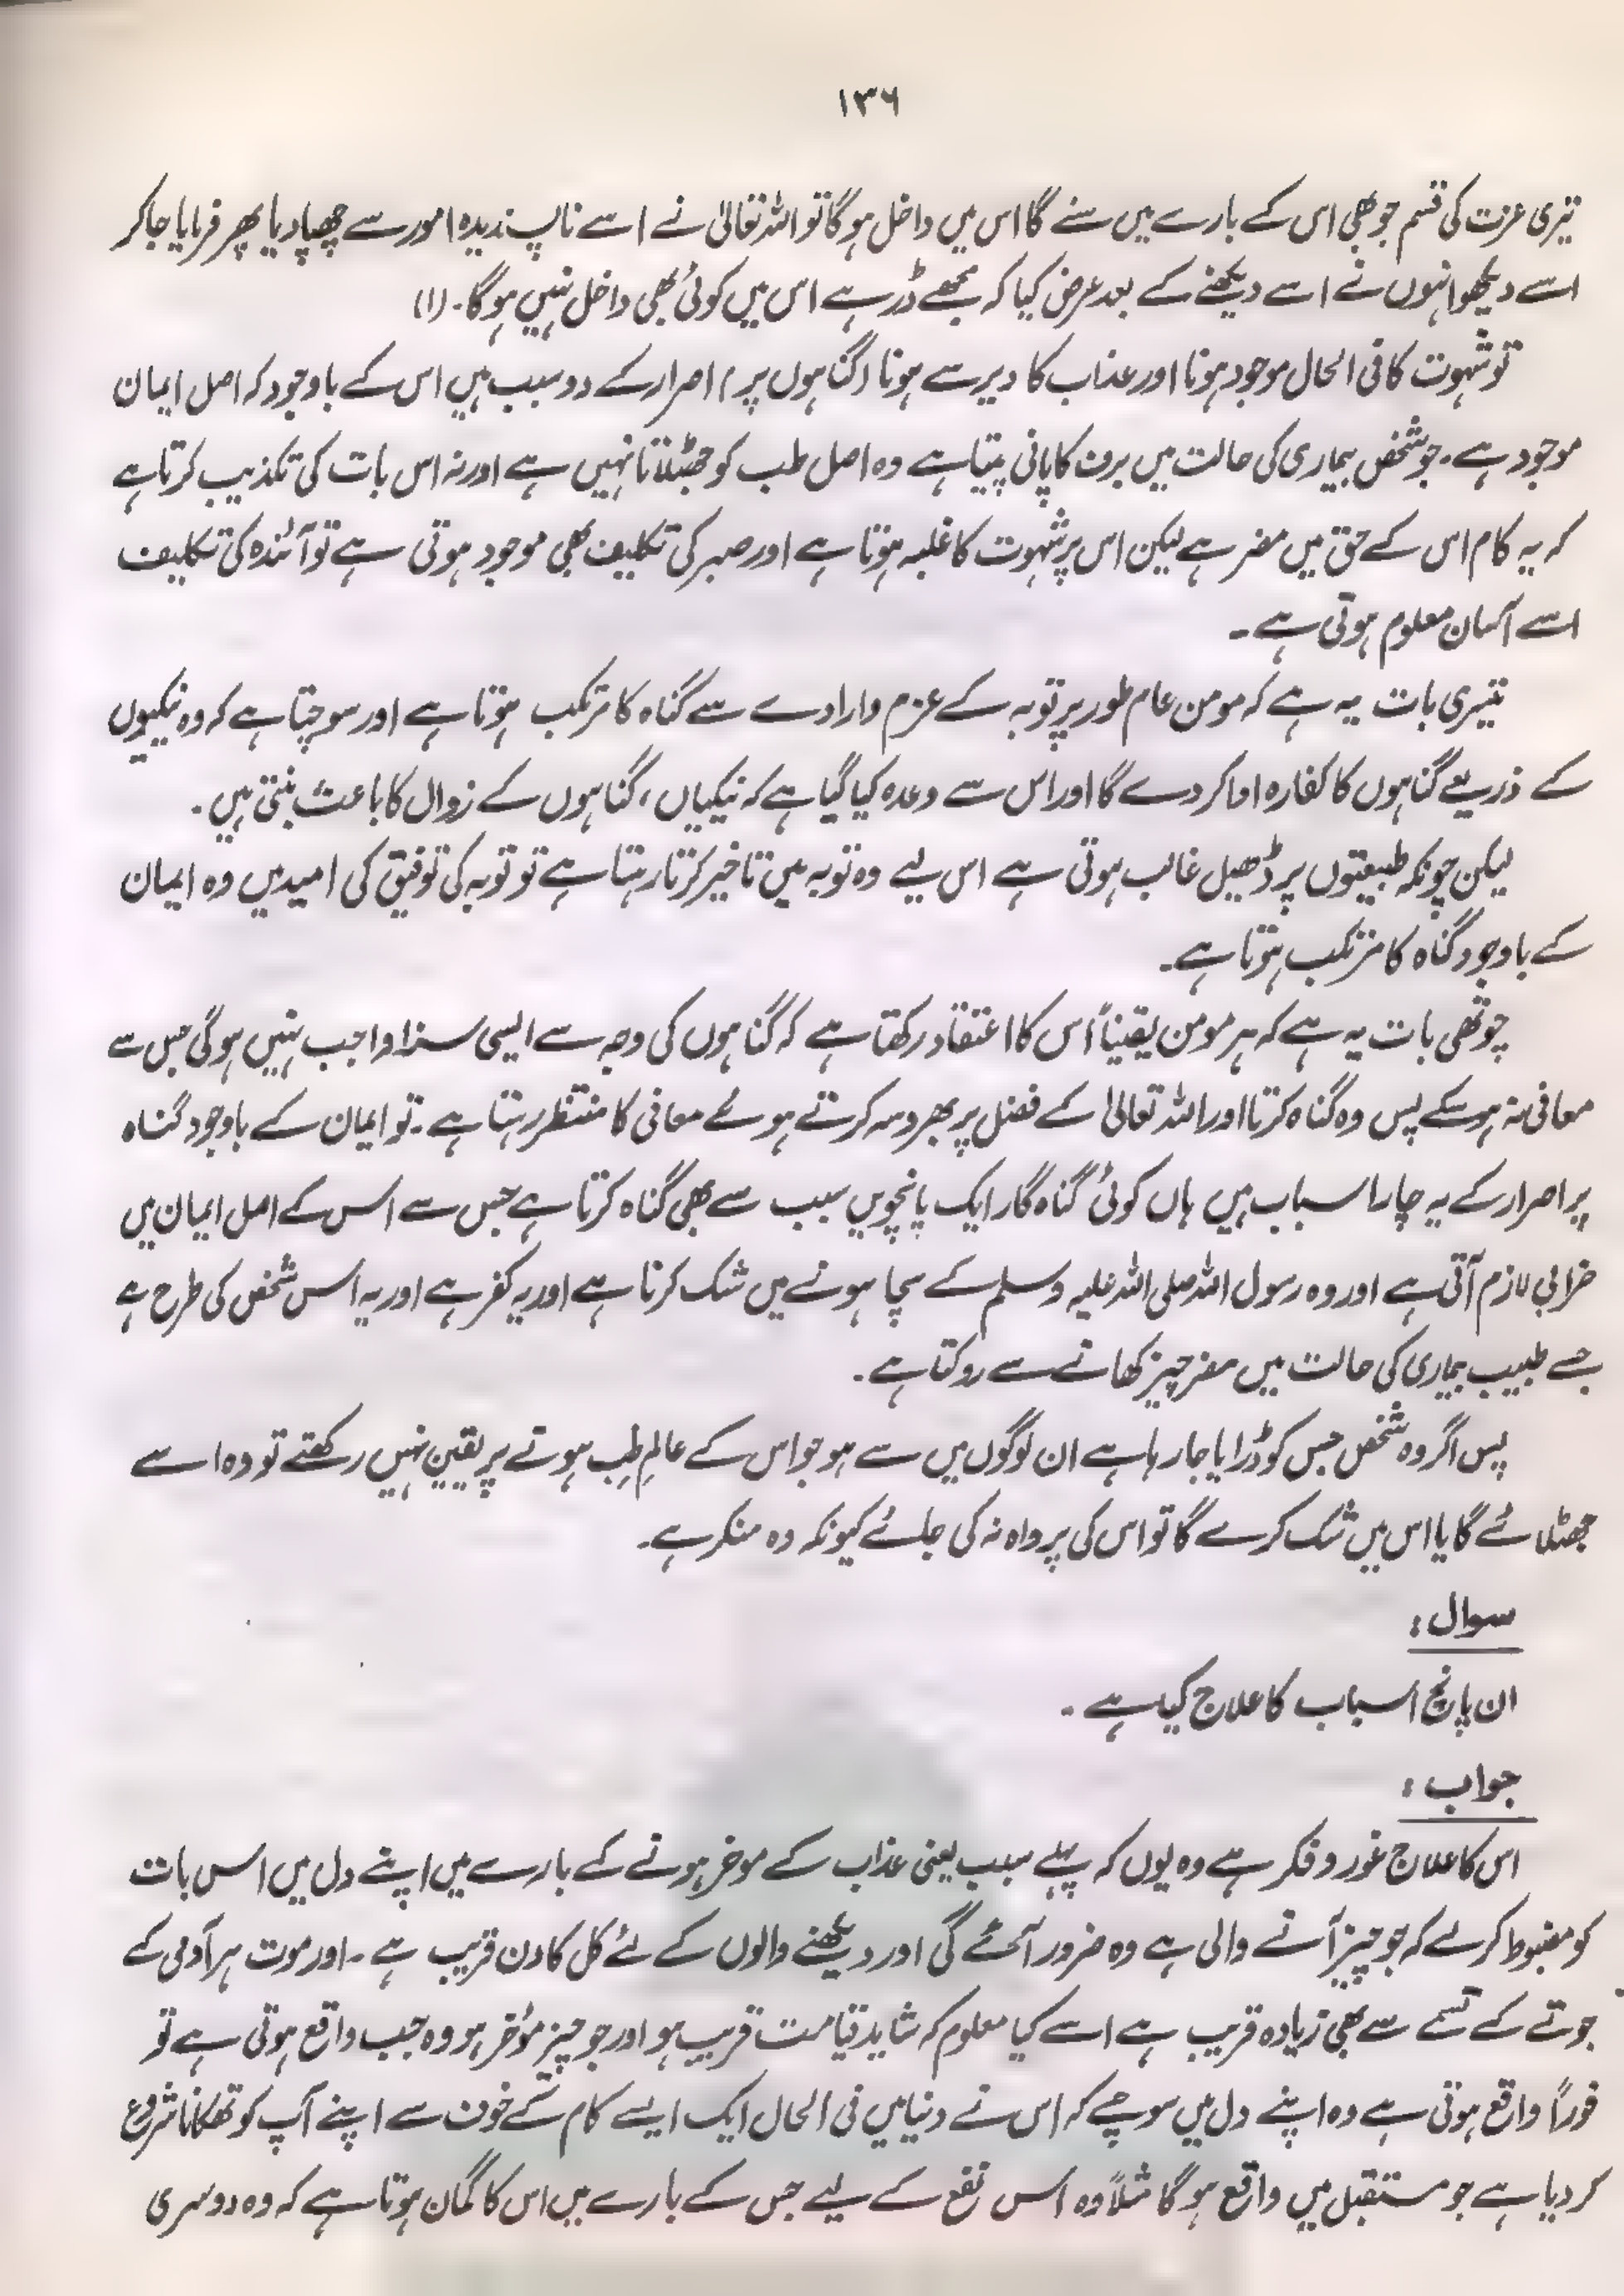 ۱۳۶
تیری عزت کی قسم جو بھی اس کے بارے میں سنے گا اس میں داخل ہو گا تو اللہ تعالیٰ نے اسے ناپسندیدہ امور سے چھپا دیا پھر فرمایا جا کر
اسے دیکھو انہوں نے اسے دیکھنے کے بعد عرض کیا کہ مجھے ڈر ہے اس میں کوئی بھی داخل نہیں ہو گا۔ (۱)
تو شہوت کا فی الحال موجود ہونا اور عذاب کا دیر سے ہونا (گناہوں پر) اصرار کے دو سبب ہیں اس کے باوجود کہ اصل ایمان
موجود ہے۔ جو شخص بیماری کی حالت میں برف کا پانی پیتا ہے وہ اصل طب کو جھٹلاتا نہیں ہے اور نہ اس بات کی تکذیب کرتا ہے
کہ یہ کام اس کے حق میں مضر ہے لیکن اس پر شہوت کا غلبہ ہوتا ہے اور صبر کی تکلیف بھی موجود ہوتی ہے تو آئندہ کی تکلیف
اسے آسان معلوم ہوتی ہے۔
تیسری بات یہ ہے کہ مومن عام طور پر توبہ کے عزم و ارادے سے گناہ کا مرتکب ہوتا ہے اور سوچتا ہے کہ وہ نیکیوں
کے ذریعے گناہوں کا کفارہ ادا کر دے گا اور اس سے وعدہ کیا گیا ہے کہ نیکیاں، گناہوں کے زوال کا باعث بنتی ہیں۔
لیکن چونکہ طبیعتوں پر ڈھیل غالب ہوتی ہے اس لیے وہ توبہ میں تاخیر کرتا رہتا ہے تو توبہ کی توفیق کی امید میں وہ ایمان
کے باوجود گناہ کا مرتکب ہوتا ہے۔
چوتھی بات یہ ہے کہ ہر مومن یقیناً اس کا اعتقاد رکھتا ہے کہ گناہوں کی وجہ سے ایسی سزا واجب نہیں ہو گی جس سے
معافی نہ ہو سکے پس وہ گناہ کرتا اور اللہ تعالیٰ کے فضل پر بھروسہ کرتے ہوئے معافی کا منتظر رہتا ہے۔ تو ایمان کے باوجود گناہ
پر اصرار کے یہ چار اسباب ہیں ہاں کوئی گناہ گار ایک پانچویں سبب سے بھی گناہ کرتا ہے جس سے اس کے اصل ایمان میں
خرابی لازم آتی ہے اور وہ رسول اللہ صلی اللہ علیہ وسلم کے سچا ہونے میں شک کرنا ہے اور یہ کفر ہے اور یہ اس شخص کی طرح ہے
جسے طبیب بیماری کی حالت میں مضر چیز کھانے سے روکتا ہے۔
پس اگر وہ شخص جس کو ڈرایا جا رہا ہے ان لوگوں میں سے ہو جو اس کے عالمِ طب ہونے پر یقین نہیں رکھتے تو وہ اسے
جھٹلائے گا یا اس میں شک کرے گا تو اس کی پرواہ نہ کی جائے کیونکہ وہ منکر ہے۔
سوال:
ان پانچ اسباب کا علاج کیا ہے۔
جواب:
اس کا علاج غور و فکر ہے وہ یوں کہ پہلے سبب یعنی عذاب کے موخر ہونے کے بارے میں اپنے دل میں اس بات
کو مضبوط کر لے کہ جو چیز آنے والی ہے وہ ضرور آئے گی اور دیکھنے والوں کے لئے کل کا دن قریب ہے۔ اور موت ہر آدمی کے
جوتے کے تسمے سے بھی زیادہ قریب ہے اسے کیا معلوم کہ شاید قیامت قریب ہو اور جو چیز مؤخر ہو وہ جب واقع ہوتی ہے تو
فوراً واقع ہوتی ہے وہ اپنے دل میں سوچے کہ اس نے دنیا میں فی الحال ایک ایسے کام کے خوف سے اپنے آپ کو تھکانا شروع
کر دیا ہے جو مستقبل میں واقع ہو گا مثلاً وہ اس نفع کے لیے جس کے بارے میں اس کا گمان ہوتا ہے کہ وہ دوسری